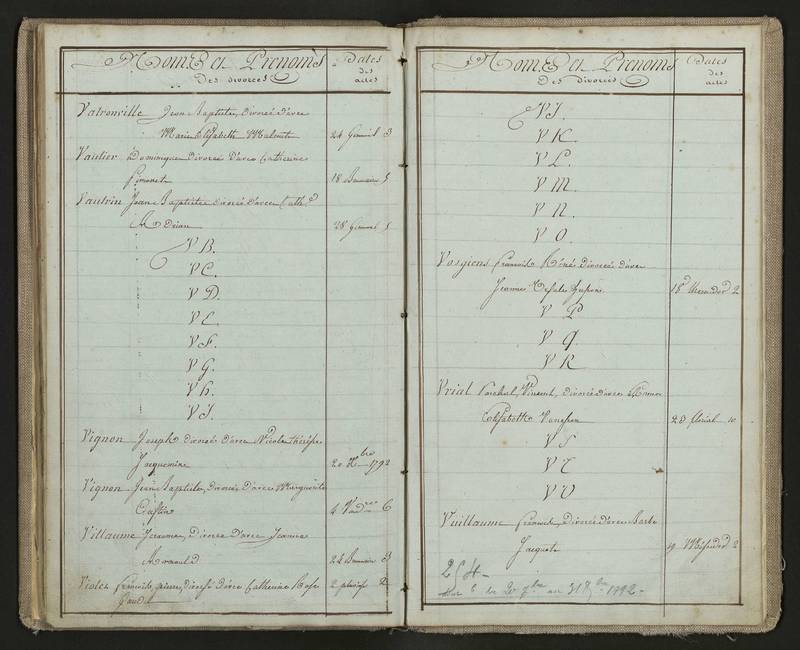 Noms et Prenoms
Des divorcés
Dates
des
actes
Vatronville Jean Baptiste, divorcé d'avec
Marie Elisabeth
24 Germinal 3
Vautier Dominique divorcé d'avec Catherine
Simonet
18 Brumaire 5
Vautrin Jean Baptiste divorcé d'avec Cathe
Adrian
28 Germinal 5
VB.
VC.
VD.
VE.
VF.
VG.
Vh.
VI.
Vignon Joseph divorcé d'avec Nicole thérèse
Jacquemine
20 Xbre 1792
Vignon Jean Baptiste, divorcé d'avec Marguerite
4 Vendre 6
Villaume Jerome, Divorcé D'avec Jeanne
Arnould
24 Brumaire 3
Violez Francois pierre, divorcé d'avec Catherine Rose
2 pluviose 2
Noms et Prenoms
Des divorcés
Dates
des
actes
VJ.
VK.
VL.
VM.
VN.
VO.
Vosgiens Francois René divorcé d'avec
Jeanne
18 Messidor 2
VP
VQ.
VR
Vrial Vincent, divorcé d'avec
Elisabeth
23 floréal 10
VS
VT
VU
Vuillaume Francois, Divorcé d'avec Barbe
Jacquot
19 Messidor 2
254
31 Xbre 1792